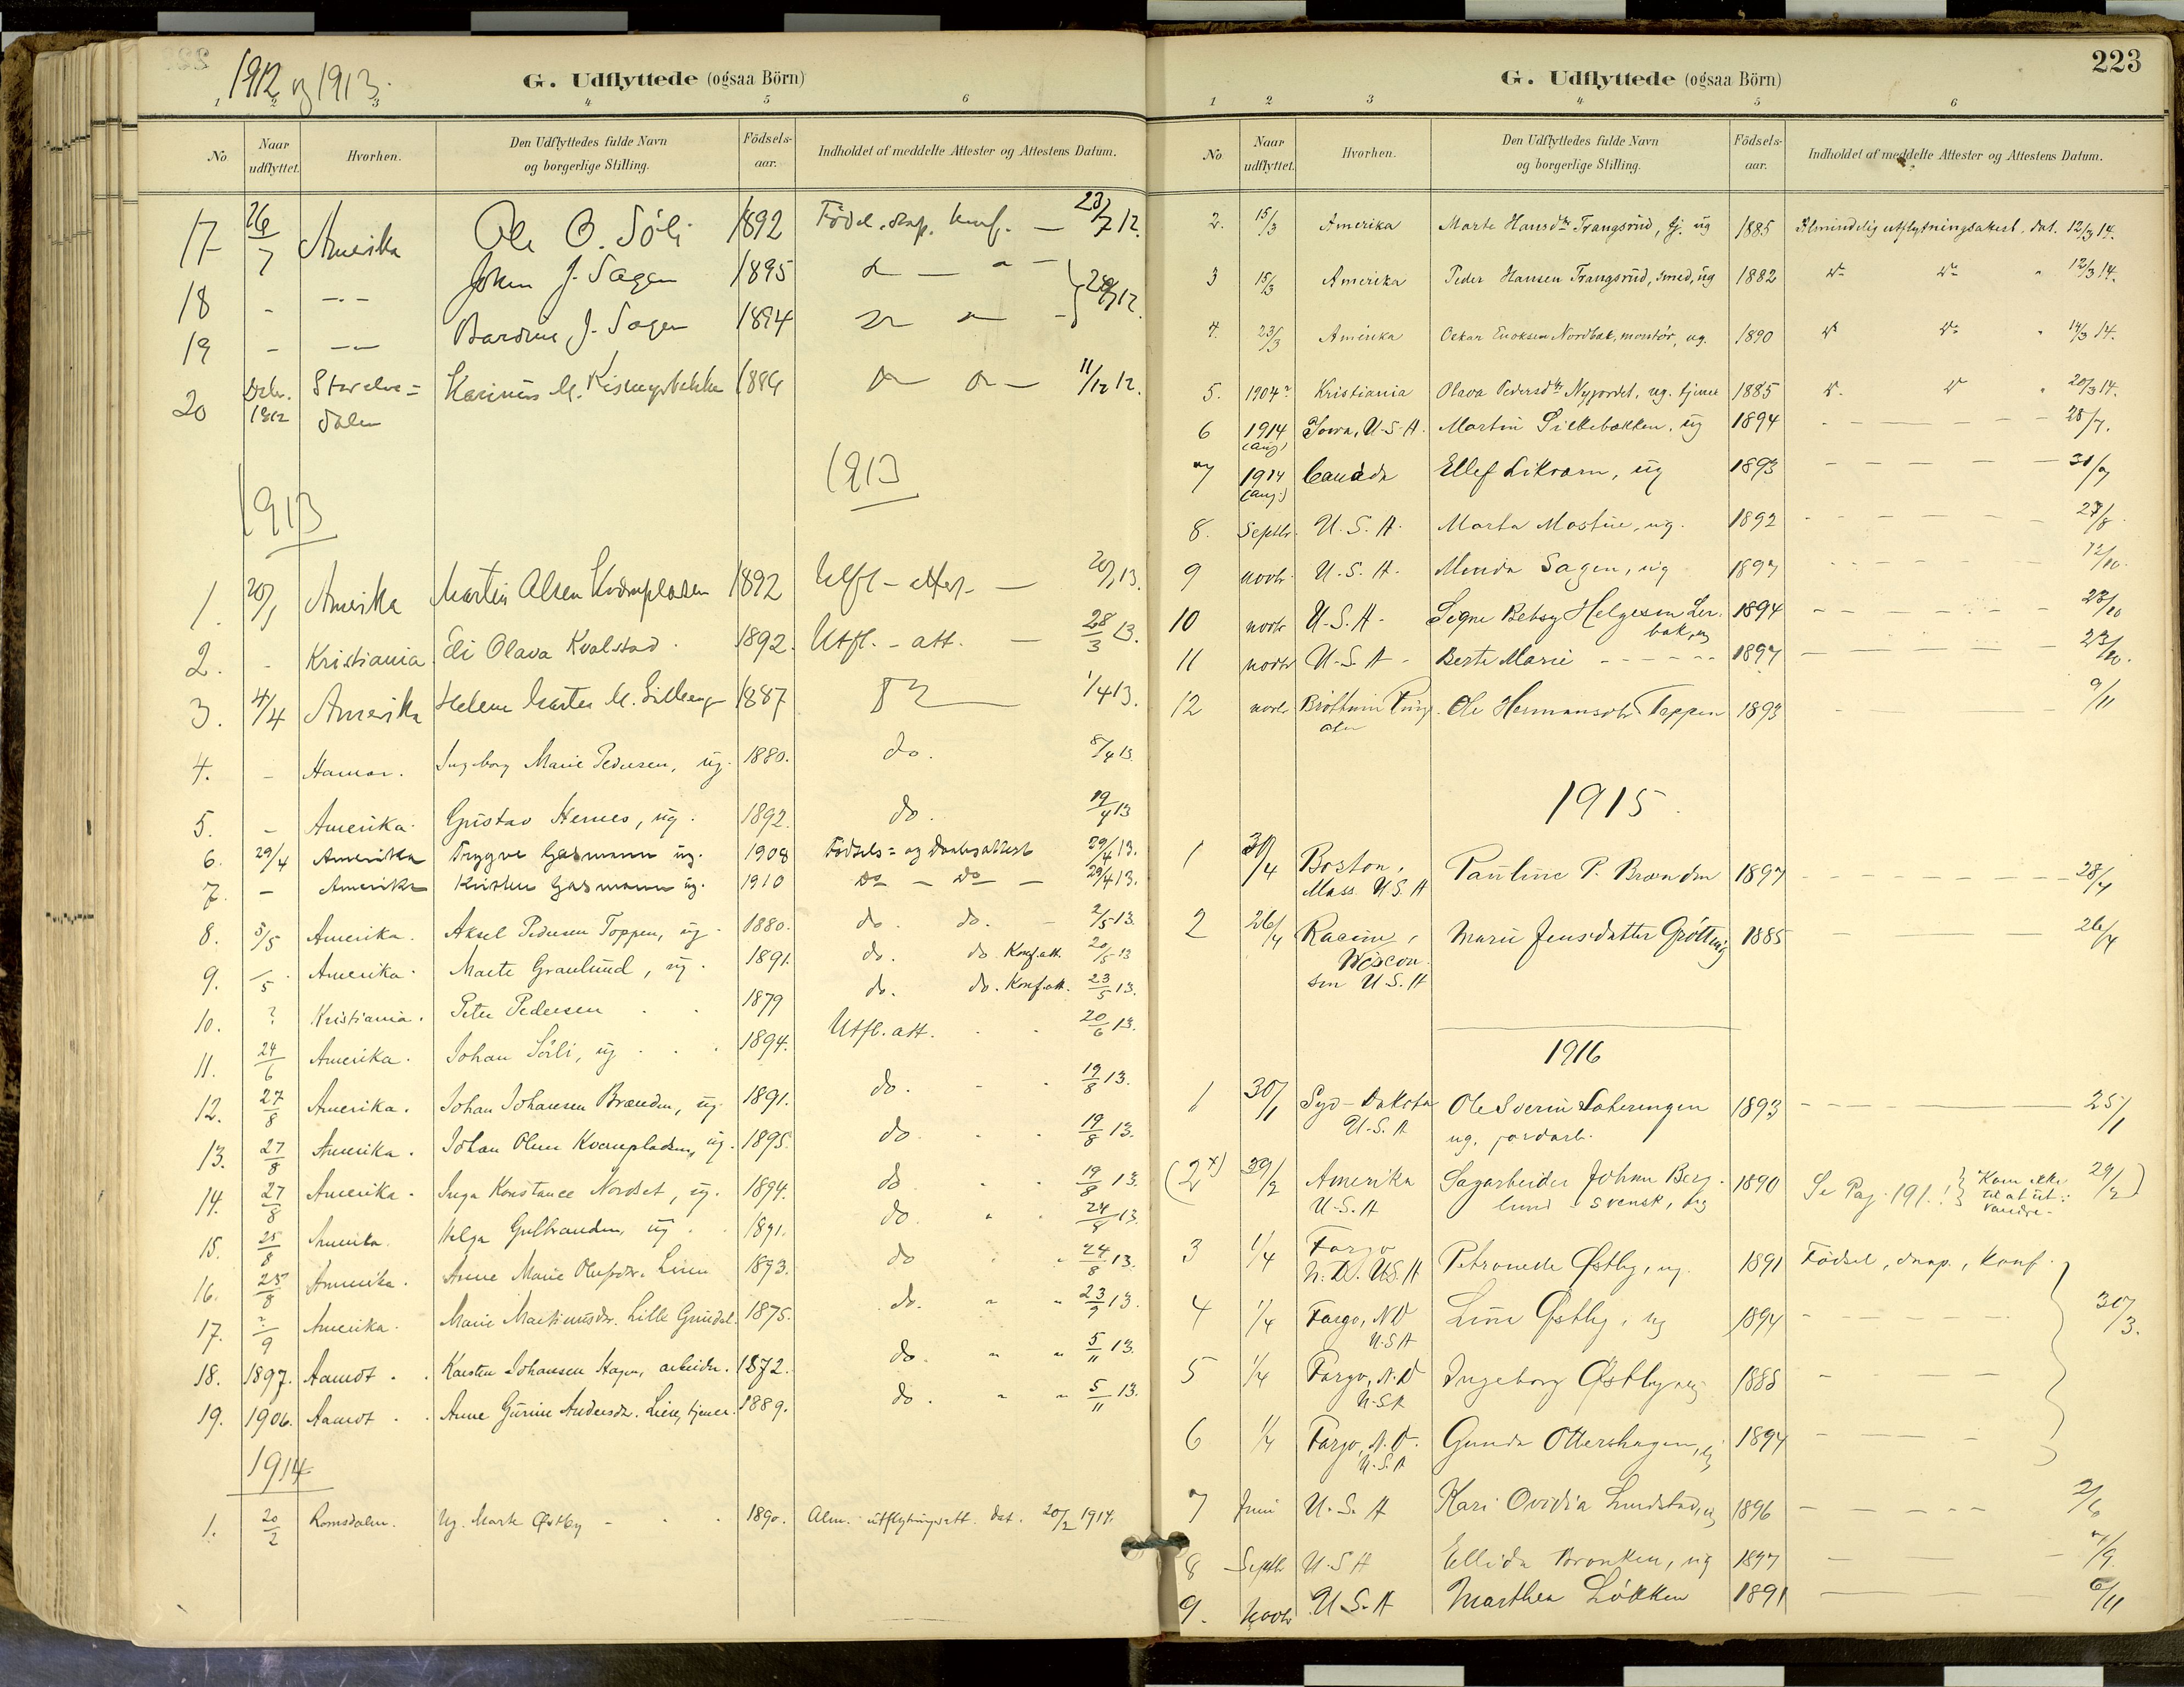 1912 og 1913.
G. Udflyttede (ogsaa Börn)
1 2 3 4 5 6
No
Naar udflyttet.
Hvorhen.
Den Udflyttedes fulde Navn og borgerlige Stilling.
Födsels-aar.
Indholdet af meddelte Attester og Attestens Datum.
17 26/7 Amerika Ole O. Söli 1892 Födsel. daap. konf. — 23/7 12.
18 - -.- J. Sagen 1895
19 - -- J. Sagen 1894
20 Debr. 1912 Storelvedalen Karinus M. 11/12 12.
1913
1913
1. 20/1 Amerika Martin Olsen Kvernpladsen 1892 Utfl-attest — 20/1 13.
2. - Kristiania. Eli Olava Kvalstad. 1892. Utfl. - att. — 28/3 13.
3. 4/4 Amerika Helene Martea M. 1887 1/4 13.
4. - Hamar. Ingeborg Marie Pedersen, ug. 1880. do. 8/4 13.
5. - Amerika. Gustav Hernes, ug. 1892. do. 19/4 13
6. 29/4 Amerika Trygve Gasmann ug. 1908 Födsels= og Daabsattest 29/4 13.
7. - Amerika Kristen Gasmann ug. 1910 Do - Do - 29/4 13.
8. 3/5 Amerika. Aksel Pedersen Toppen, ug. 1880. do. do. - 2/5 13.
9. /5 Amerika. Marte Granlund, ug. 1891. do. do Konf.att. 20/5 13
10. ? Kristiania. Peter Pedersen . . 1879 do. do. Konf.att. 23/5 13.
11. 24/6 Amerika. Johan Sörli, ug . . . 1894. Utfl. att. . . 20/6 13.
12. 27/8 Amerika. Johan Johansen Brænden, ug. 1891. do. - . 19/8 13.
13. 27/8 Amerika. Johan Olsen Kvernpladsen, ug. 1895. do . . 19/8 13.
14. 27/8 Amerika. Inga Konstance Nordset, ug. 1894. do . . 19/8 13.
15. 25/8 Amerika. Helga Gulbranden, ug . . 1891. do. " . 24/8 13.
16. 25/8 Amerika. Anne Marie Olufsdr. Lien 1893. do " " 24/8 13.
17. ?/9 Amerika. Marie Martinusdr. Lille Grindal. 1875. do. " " 23/9 13.
18. 1897. Aamot . . Karsten Johansen Hagen, arbeider. 1872. do. " " 5/11 13.
19. 1906. Aamot . . Anne Gurine Andersdr. Lien, tjener. 1889. do . " " 5/11 13.
1914
1. 20/2 Romsdalen. Ug. Marte Østby - . . 1890. Alm. utflytningsatt. dat. 20/2 1914.
223
G. Udflyttede (ogsaa Börn)
1 2 3 4 5 6
No
Naar udflyttet.
Hvorhen.
Den Udflyttedes fulde Navn og borgerlige Stilling.
Födsels-aar.
Indholdet af meddelte Attester og Attestens Datum.
2. 15/3 Amerika Marte Hansdtr Trangsrud, tj. ug 1885 Almindelig utflytningsattest, dat. 12/3 14.
3 15/3 Amerika Peder Hansen Trangsrud, smed, ug 1882 " 12/3 14.
4. 23/3 Amerika Oskar Enoksen Nordbak, montör, ug. 1890 " 14/3 14.
5. 1904? Kristiania Olava Pedersdtr Nyjordet, ug. tjener 1885 " 20/3 14.
6 1914 (aug) Iowa, U.S.A. Martin Silkebakken, ug 1894 - - - - - 28/7.
7 1914 (aug.) Canada Ellef Likvarn, ug 1893 - - - - - 31/7
8. Septbr. U.S.A. Marta Mostue, ug. 1892 - - - - - 27/8.
9 novbr. U.S.A. Minda Sagen, ug 1897 - - - - - 12/10.
10 novbr U.S.A. Signe Betsy Helgesen Ler- bak, ug 1894 - - - - - 23/10
11 novbr U.S.A. Berte Marie - - - - - - 1897 - - - - - 23/10.
12 novbr. Ole Hermansdtr. Toppen 1893 - - - - 9/11
1915.
1 30/4 Boston, Mass. U.S.A Pauline P. Brænden 1897 - - - - - - - 28/4
2 26/4 Racine, Wiscon- sin U.S.A Marie Jensdatter Gröttlng 1885 - - - 26/4
1916
1 30/1 Syd-Dakota U.S.A Ole Sverin ug. jordarb. 1893 - - - 25/1
(2x) 29/2 Amerika U.S.A Sagarbeider Johan Berg- lund svensk, ug 1890 Se Pag. 191.! } Kom ikke til at ut- vandre. 29/2)
3 1/4 Fargo N.D. U.S.A Petronelle Østby, ug. 1891 Födsel, daap, konf.
4 1/4 Fargo, N.D U.S.A Line Østby, ug 1894 - - - - - - 30/3.
5 1/4 Fargo, N.D U.S.A Ingeborg Østby, ug 1888 - - - -
6 1/4 Fargo, N.D. U.S.A Gunda Ottershagen, ug 1894 - - - -
7 Juni U.S.A Kari Ovidia Lundstad, ug 1896 - - - - - 2/6
8 Septbr U.S.A Ellida Bronken, ug 1897 - - 7/9.
9. Novbr U.S.A Marthea Lökken 1891 - - 6/11